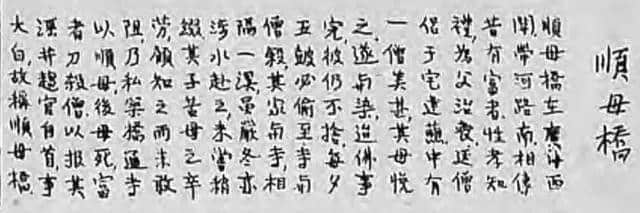 順母橋
順母橋在廣海西
關帶河路南，相傳
昔有富者，性孝知
禮，為父治喪，延僧
侶于宅建醮，中有
一僧美甚，其母悅
之，遂与染。迨佛事
完，彼仍不捨，每夕
五鼓必偷至寺，与
僧敘。其家与寺，相
隔一溪，虽嚴冬亦
涉水赴之，未嘗稍
綴。其子苦母之辛
勞，知之而未敢
阻，乃私築橋通寺
以順母。後母死，富
者刀殺僧，以报其
淫，并趨官自首，事
大白，故稱順母橋。